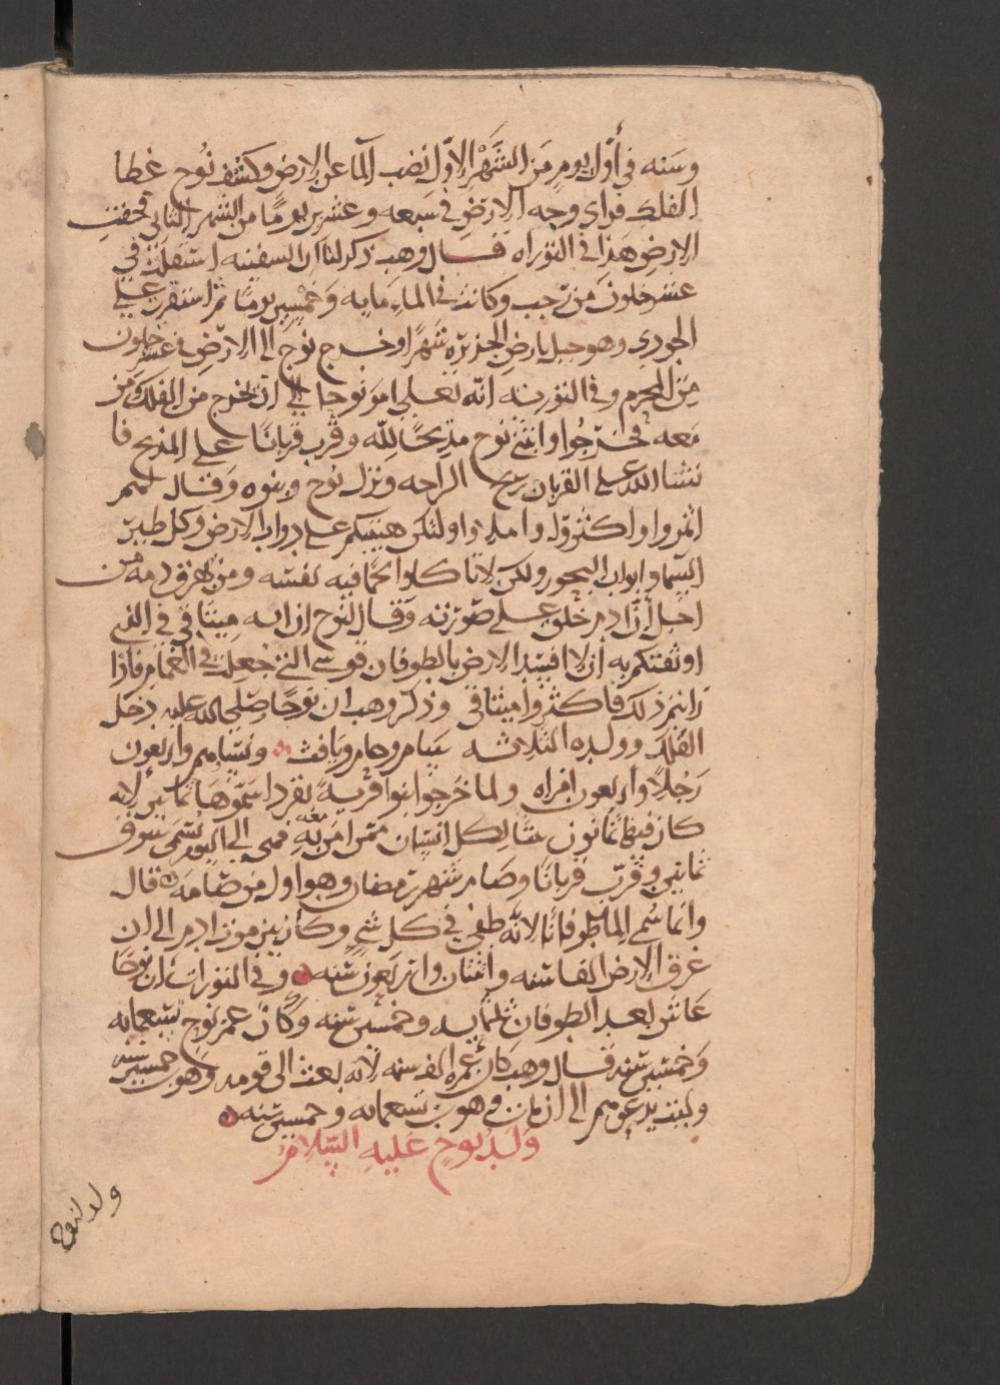 وسنه في أول يوم من الشهر الاول نضب الما عن الارض وكشف نوح غطا
الفلك فراي وجه الارض في سبعه وعشرين يومًا من الشهر الثاني فجفت
الارض هذا في التوراه قال وهب ذكر لنا ان السفينه استقلت في
عشر خلون من رجب وكانت في الماء مايه وخمسين يومًا ثم استقرت على
الجودي وهو جبل بارض الجزيره شهرًا وخرج نوح الى الارض في عشر خلون
من المحرم وفي التوريه انه تعلى امر نوحا ان يخرج من الفلك ومن
معه فخرجوا وابتنى نوح مذبحًا لله وقرب قربانًا على المذبح فا
نشا الله على القربان ريح الراحه ونزل نوح وبنوه وقال لهم
اثمروا واكثروا واملوا ولتكن هيبتكم على دواب الارض وكل طير
السما ولكن لا تاكلوا لحمًا فيه نفسه ومن يهرق دمه من
اجل ان ادم خلق على صورته وقال لنوح ان ايه ميثاقي الذي
اوثقتكم به ان لا افسد الارض بالطوفان قوسي التي جعلت في الغمام فاذا
رايتم ذلك فاكثروا ميثاقي وذكر وهب ان نوحًا صلى الله عليه دخل
الفلك وولده الثلاثه سام وحام ويافث ونساهم واربعون
رجلًا واربعون امراه ولما خرجوا بنوا قريةً بقردا سموها ثمانين لانه
كان فيها ثمانون بيتًا لكل انسان ممن امن معه فهي الى اليوم تسمى سوق
ثمانين وقرب قربانًا وصام شهر رمضان وهو اول من صامه قال
وانما سمي الما طوفانًا لانه طفى في كل شي وكان بين موت ادم الى ان
غرق الارض الفا سنه واثنان واربعون سنه وفي التورات ان نوحًا
عاش بعد الطوفان ثلثمايه وخمسين سنه وكان عمر نوح تسعمايه
وخمسين سنه قال وهب كان عمره الف سنه لانه بعث الى قومه وهو بن خمسين سنه
ولبث يدعوهم الى ان مات وهو بن تسعمايه وخمسين سنه
ولد نوح عليه السلام
ولد لنوح